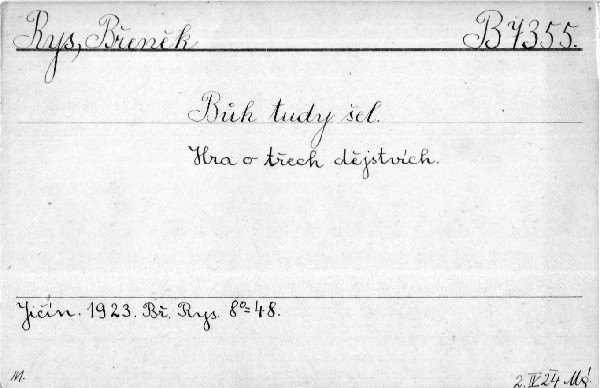 Rys, Břeněk B 7355.
Bůh tudy šel.
Hra o třech dějstvích.
Jičín. 1923. Bř. Rys. 8º=48.
M. 2. IV 24 Má